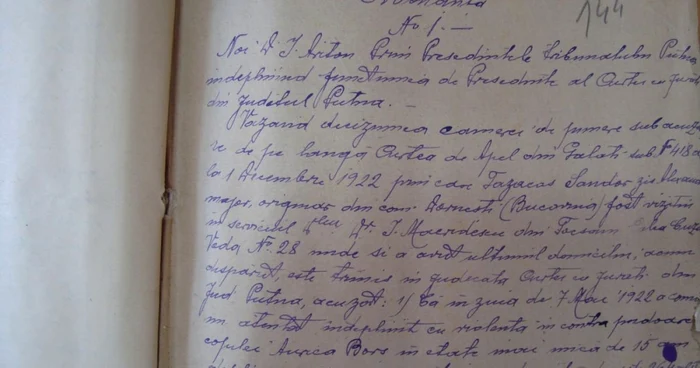 România
144
No 1. —
Noi D. I. Ariton Prim Presedintele Tribunalului Putna
indeplinind functiunea de Presedinte al Curtei cu Jurati
din Judetul Putna. —
Vazand deciziunea camerei de punere sub acuza
re de pe langă Curtea de Apel din Galati sub No 418 a
la 1 Decembrie 1922 prin care Tazacas Sandor zis
major, originar din com. Dornesti (Bucovina) fost
in serviciul Dlui Dr. I. din Focsani
Voda No. 28 unde si a avut ultimul domiciliu, acum
disparut, este trimis in judecata Curtei cu Jurati din
Jud Putna, acuzat: 1) Că in ziua de 7 Mai 1922 a com
un atentat indeplinit cu violenta in contra pudoarei
copilei Aurica Bors in etate mai mica de 15 ani